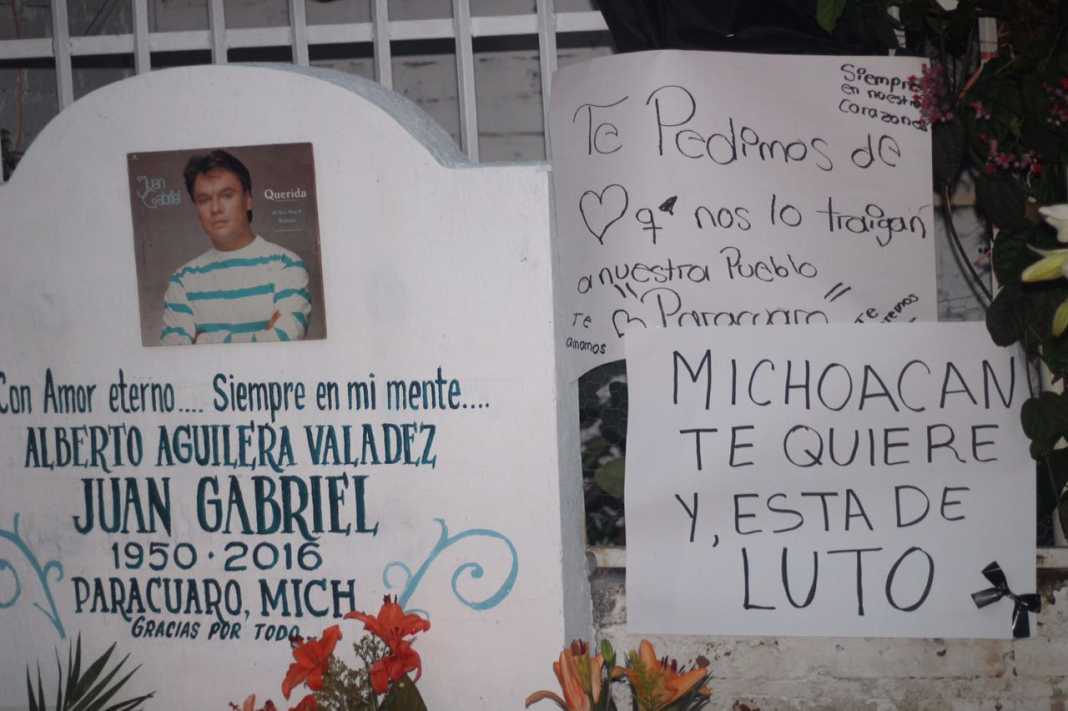 Juan
Gabriel
Querida
Con Amor eterno.... Siempre en mi mente....
ALBERTO AGUILERA VALADEZ
JUAN GABRIEL
1950 · 2016
PARACUARO, MICH
GRACIAS POR TODO
Siempre
en nuestros
corazones
Te Pedimos de
q' nos lo traigan
a nuestra Pueblo
"Paracuaro"
Te
amamos
Te
MICHOACAN
TE QUIERE
Y, ESTA DE
LUTO